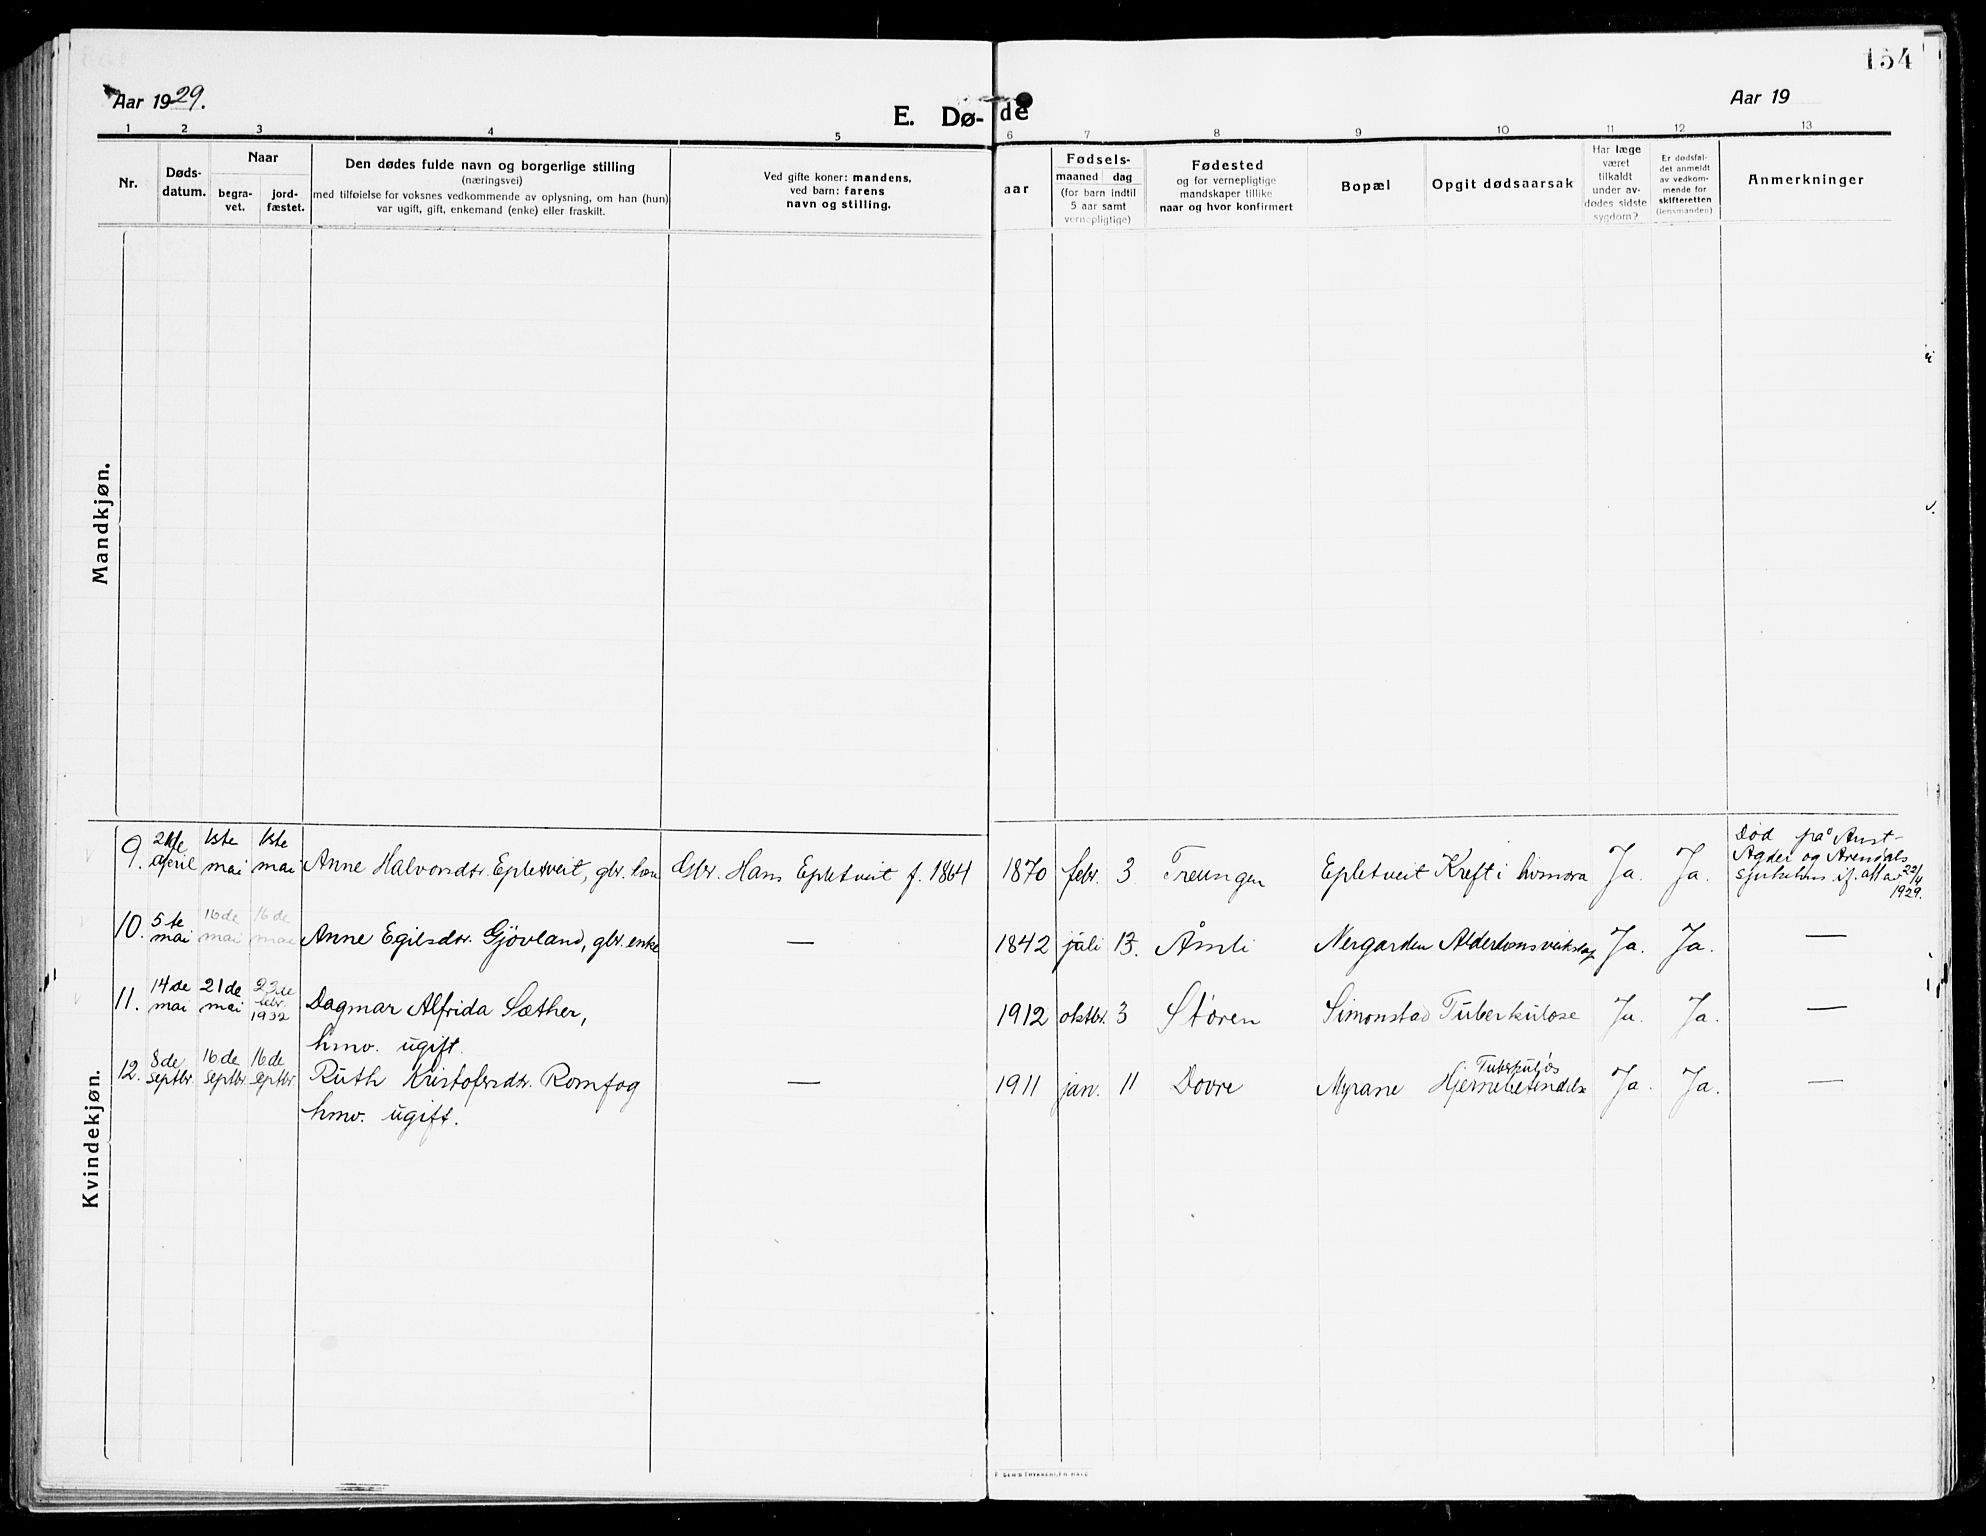 154
Aar 1929.
E. Dø- de
Aar 19
1 2 3 4 5 6 7 8 9 10 11 12 13
Nr.
Døds-
datum.
Naar
begra-
vet.
jord-
fæstet.
Den dødes fulde navn og borgerlige stilling
(næringsvei)
med tilføielse for voksnes vedkommende av oplysning, om han (hun)
var ugift, gift, enkemand (enke) eller fraskilt.
Ved gifte koner: mandens,
ved barn: farens
navn og stilling.
aar
Fødsels-
maaned dag
(for barn indtil
5 aar samt
vernepligtige)
Fødested
og for vernepligtige
mandskaper tillike
naar og hvor konfirmert
Bopæl
Opgit dødsaarsak
Har læge
været
tilkaldt
under av-
dødes sidste
sygdom?
Er dødsfal-
det anmeldt
av vedkom-
mende for
skifteretten
(lensmanden)
Anmerkninger
Mandkjøn.
Kvindekjøn.
9. april 1ste mai 1ste mai Anne Halvorsdtr. Epletveit, gbr. kone Gbr. Hans Epletveit f. 1864 1870 febr. 3 Treungen Epletveit Kreft i livmora Ja. Ja. Død på Aust-
Agder og Arendals
sjukehus if. att av 22/4
1929.
10. 5te mai 16de mai 16de mai Anne Egilsdtr. Gjövland, gbr. enke — 1842 juli 13. Åmli Nergarden Ja. Ja. —
11. 14de mai 21de mai febr. 1932 Dagmar Alfrida Sæther, 1912 oktbr. 3 Støren Simonstad Tuberkulose Ja. Ja. —
hmv. ugift.
12. 8de septbr. 16de septbr. 16de septbr. Ruth Kristofersdtr. Romfog — 1911 jan. 11 Dovre Myrane Tuberkuløs Hjernebetendelse Ja. Ja. —
hmv. ugift.